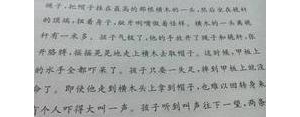 绳子,把帽子挂在最高的那根横木的一头,然后坐在桅杆
的顶端,扭着身子,龇牙咧嘴做着怪样。横木的一头离桅
杆有一米多。孩子气极了,他的手放开了绳子和桅杆,张
开胳膊,摇摇晃晃地走上横木去取帽子。这时候,甲板上
的水手全都吓呆了。孩子只要一失足,摔到甲板上就没
命了。即使他走到横木头上拿到帽子,也难以回转身来
有个人吓得大叫一声。孩子听到叫声往下一望,两条